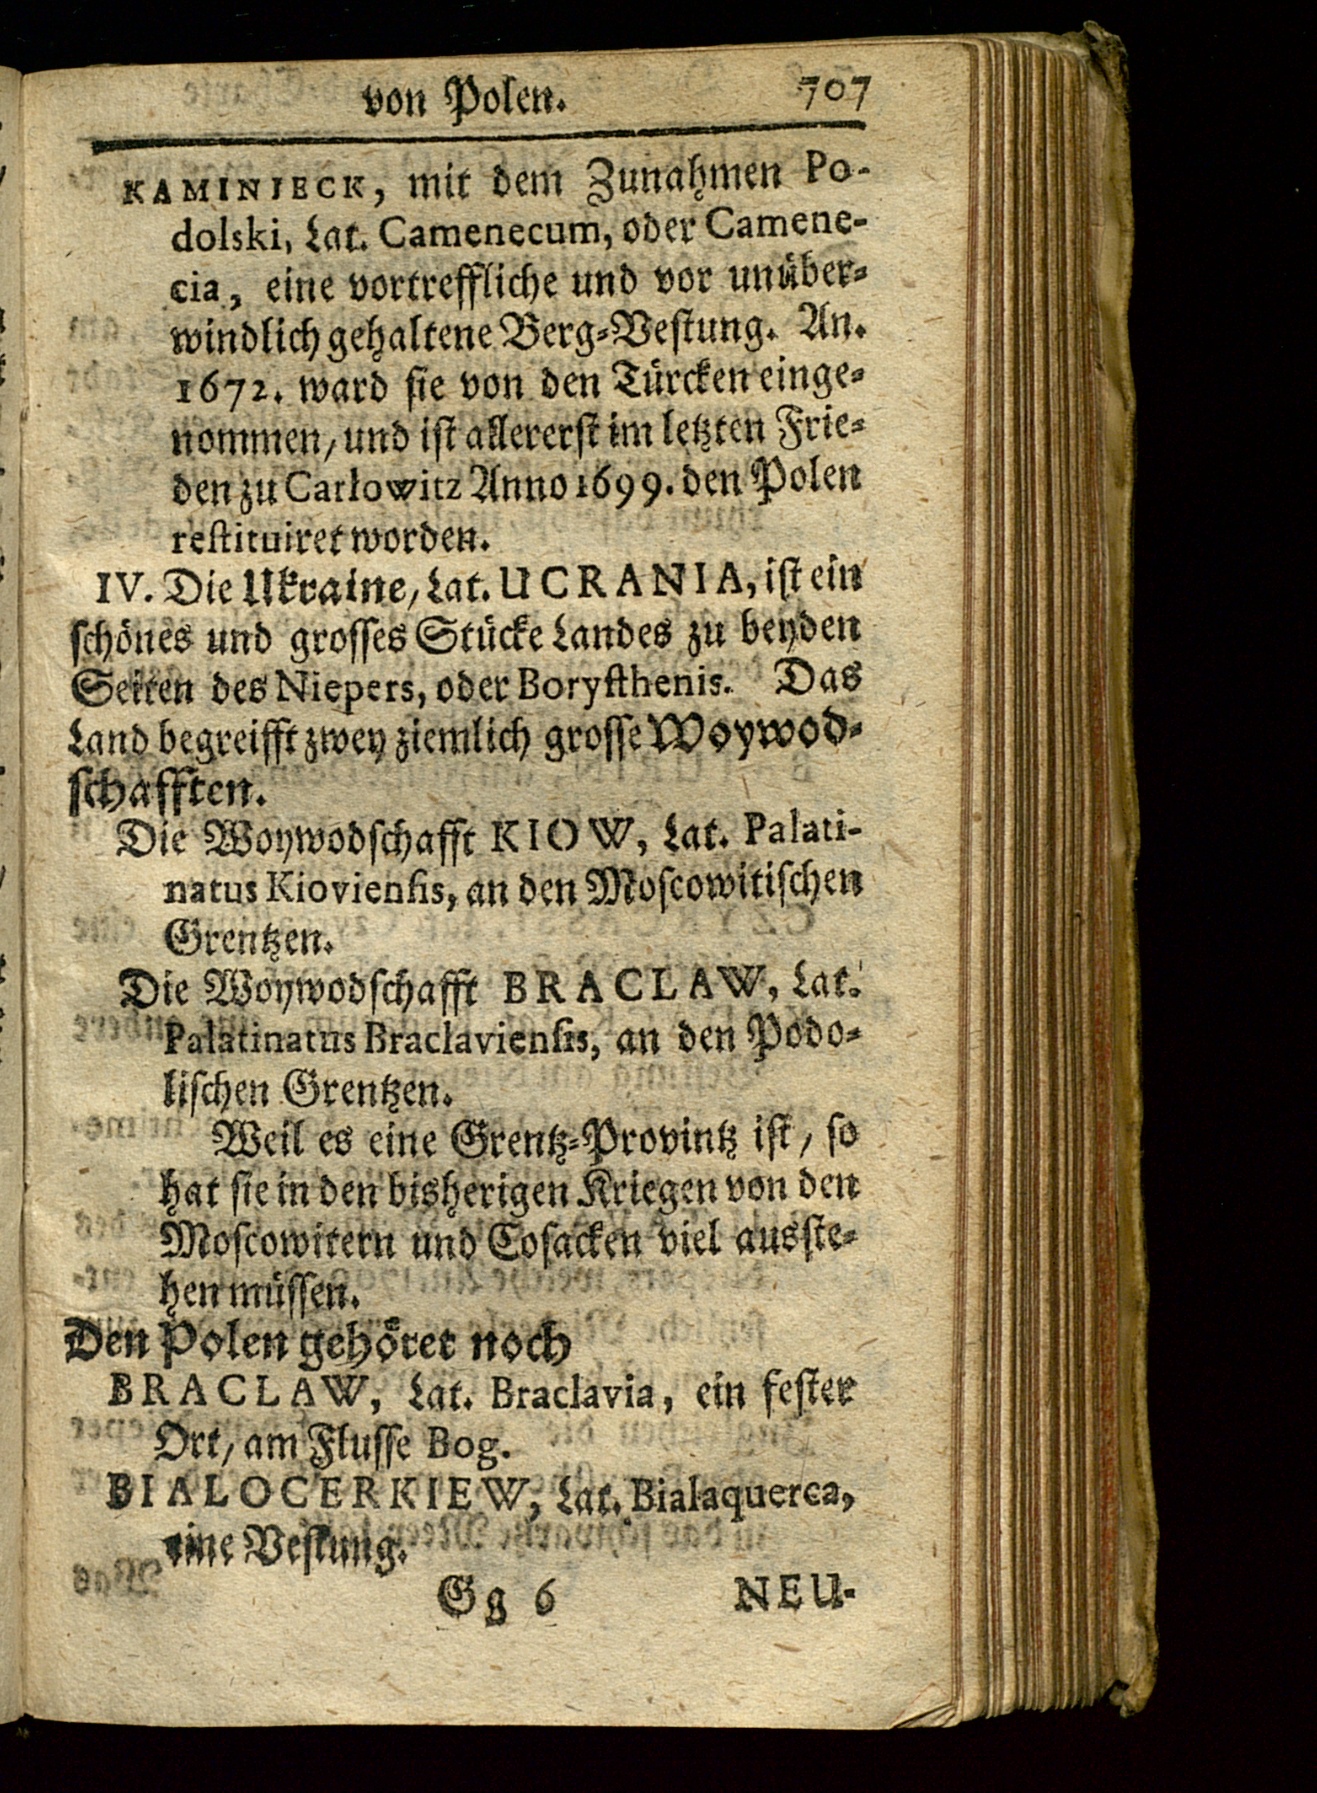 von Polen. 707
KAMINIECK, mit dem Zunahmen Po-
dolski, Lat. Camenecum, oder Camene-
cia, eine vortreffliche und vor unüber-
windlich gehaltene Berg-Vestung. An.
1672. ward sie von den Türcken einge-
nommen, und ist allererst im letzten Frie-
den zu Carlowitz Anno 1699. den Polen
restituiret worden.
IV. Die Ukraine, Lat. UCRANIA, ist ein
schönes und grosses Stücke Landes zu beyden
Seiten des Niepers, oder Borysthenis. Das
Land begreifft zwey ziemlich grosse Woywod-
schafften.
Die Woywodschafft KIOW, Lat. Palati-
natus Kioviensis, an den Moscowitischen
Grentzen.
Die Woywodschafft BRACLAW, Lat.
Palatinatus Braclaviensis, an den Podo-
lischen Grentzen.
Weil es eine Grentz-Provintz ist, so
hat sie in den bisherigen Kriegen von den
Moscowitern und Cosacken viel ausste-
hen müssen.
Den Polen gehöret noch
BRACLAW, Lat. Braclavia, ein fester
Ort, am Flusse Bog.
BIALOCERKIEW, Lat. Bialaquerca,
eine Vestung.
Gg 6 NEU-